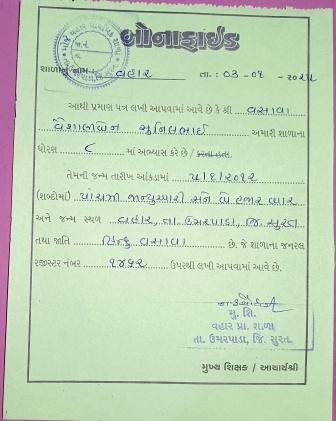 બોનાફાઈડ
શાળાનું નામ : વહાર તા. : ૦૩-૦૧-૨૦૨૫
આથી પ્રમાણ પત્ર લખી આપવામાં આવે છે કે શ્રી વસાવા
વૈશાલીબેન સુનિલભાઈ અમારી શાળાના
ધોરણ ૮ માં અભ્યાસ કરે છે / કરતા હતા.
તેમની જન્મ તારીખ આંકડામાં ૫/૧/૨૦૧૨
(શબ્દોમાં) પાંચમી જાન્યુઆરી સને બે હજાર બાર
અને જન્મ સ્થળ વહાર, તા. ઉમરપાડા, જિ. સુરત
તથા જાતિ હિન્દુ વસાવા છે. જે શાળાના જનરલ
રજીસ્ટર નંબર ૧૪૬૨ ઉપરથી લખી આપવામાં આવે છે.
મુ. શિ.
વહાર પ્રા. શાળા
તા. ઉમરપાડા, જિ. સુરત.
મુખ્ય શિક્ષક / આચાર્યશ્રી